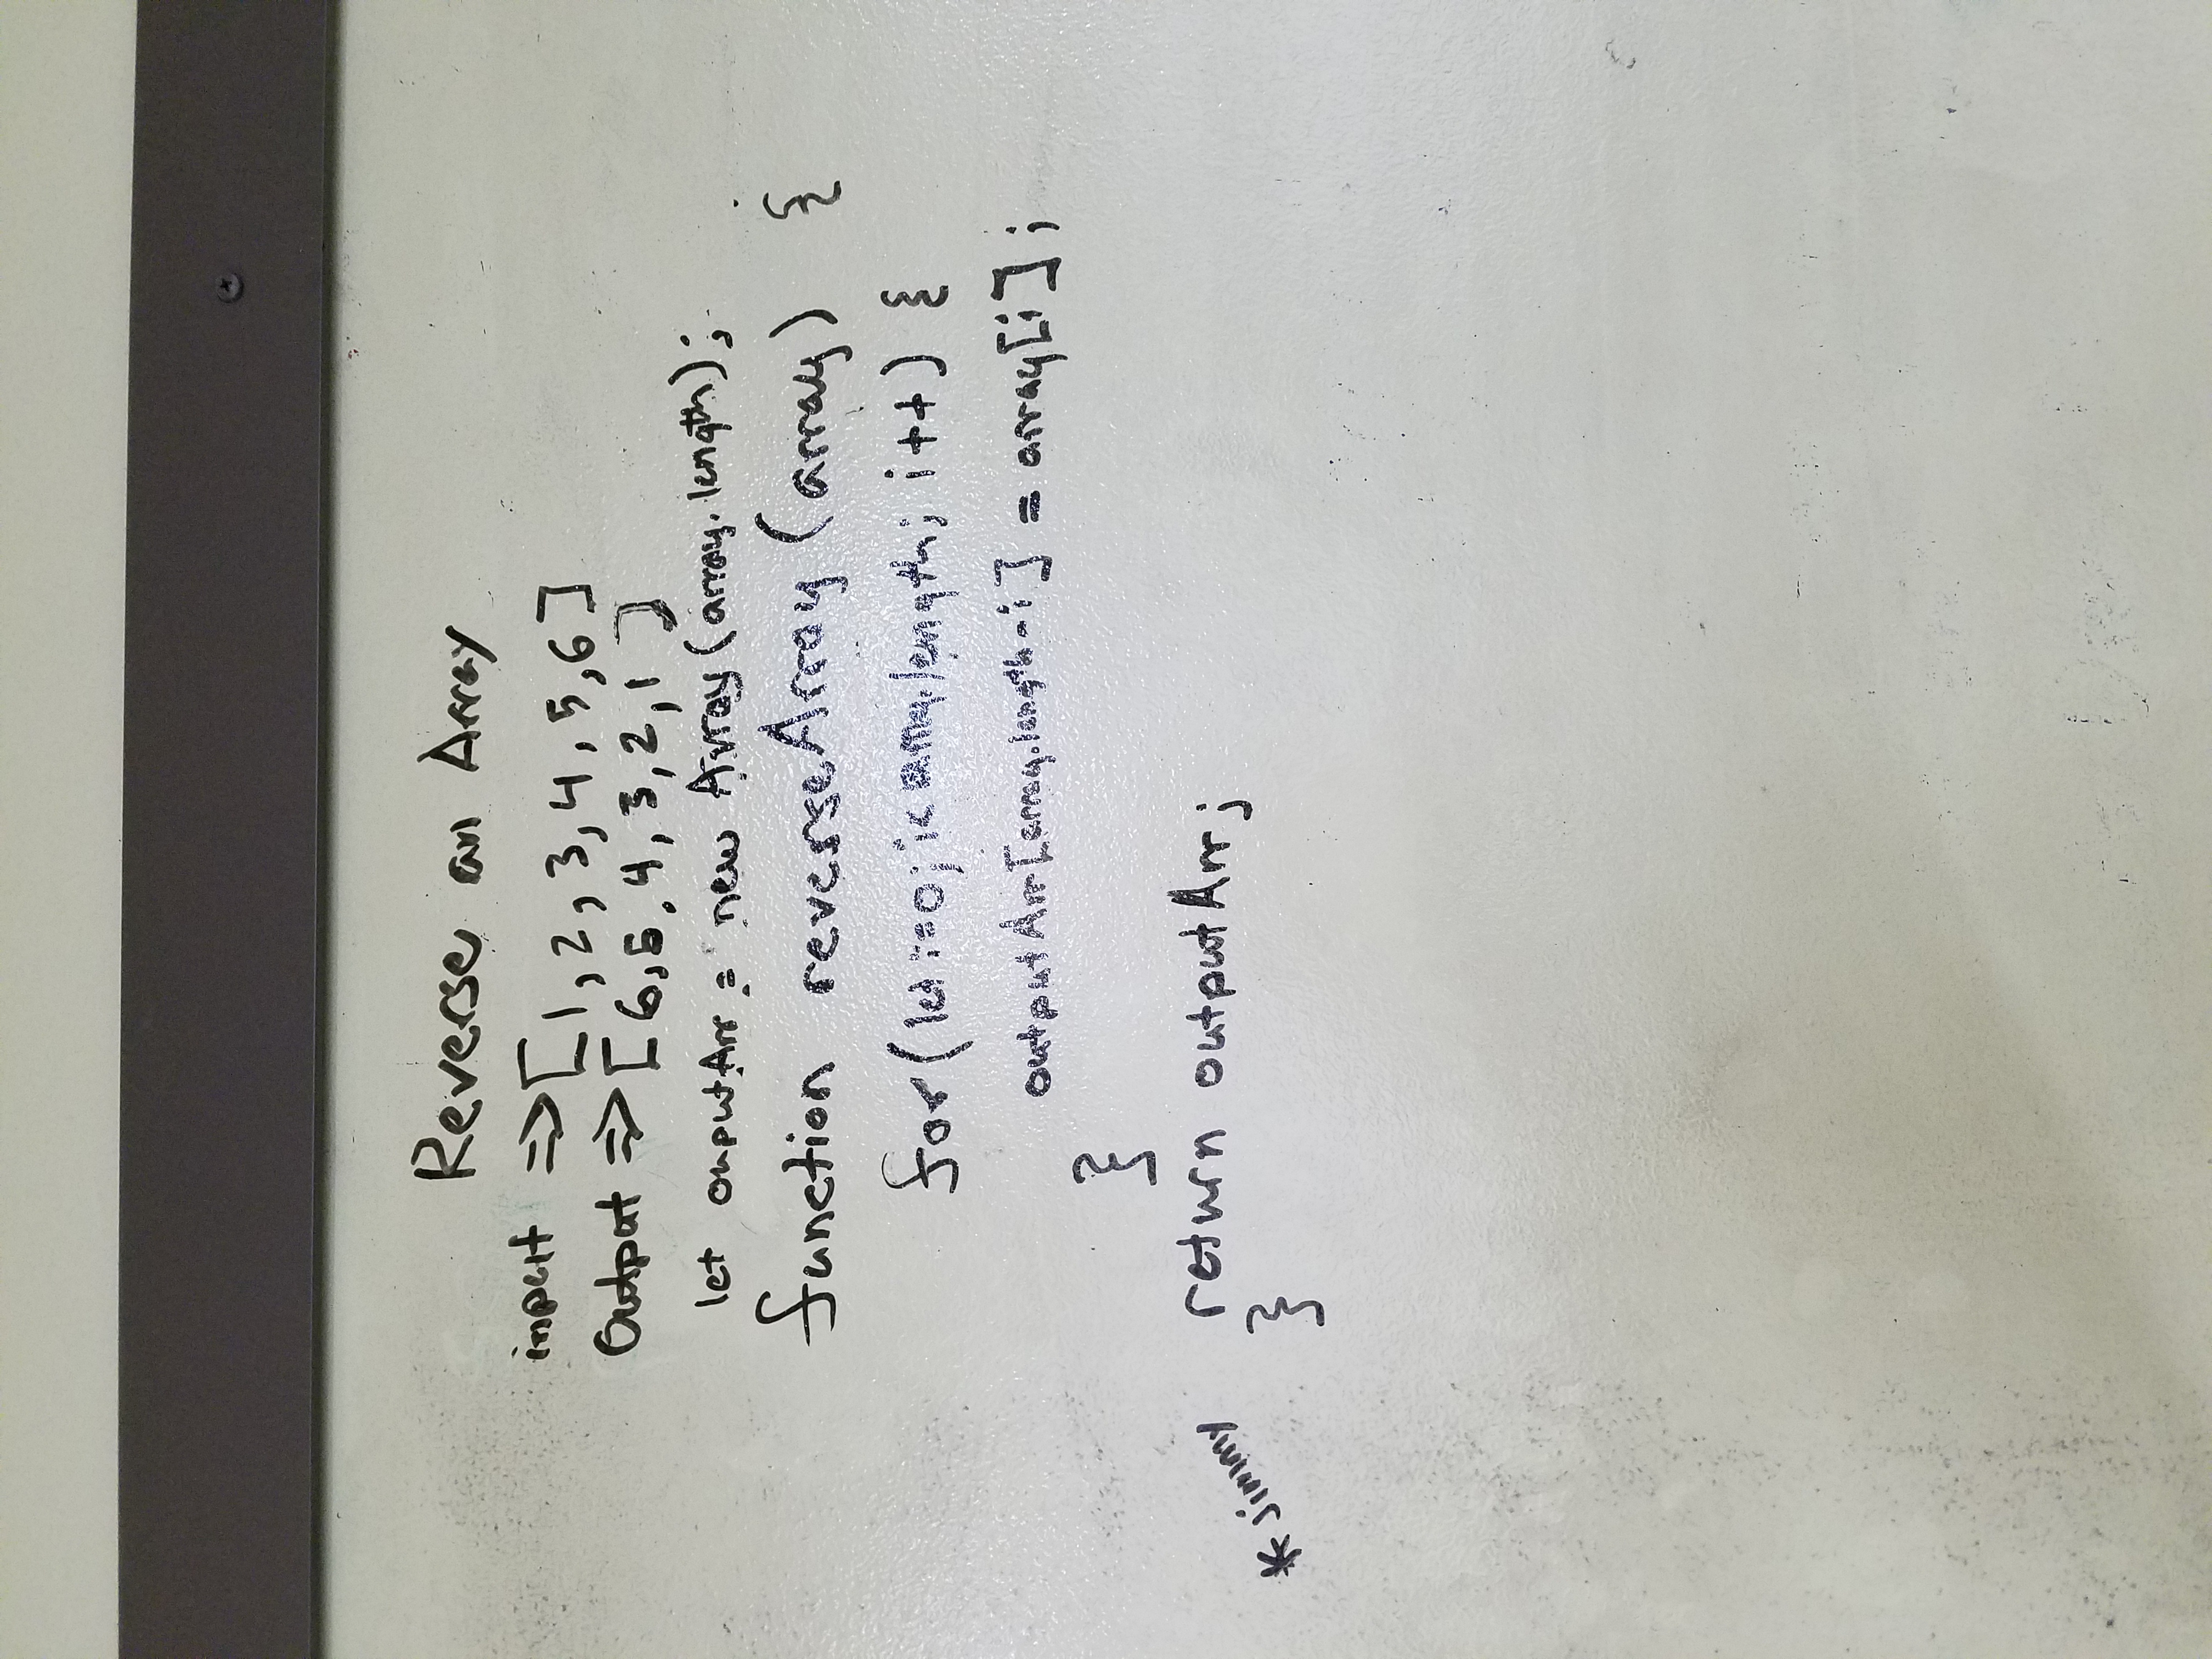 Reverse an Array
input => [1, 2, 3, 4, 5, 6]
Output => [6, 5, 4, 3, 2, 1 ]
let ouputArr = new Array (array.length);
function reverseArray (array) {
for(let i=0; i< array.length; i++) {
outputArr[array.length-i] = array[i];
}
return outputArr;
*jimmy
}